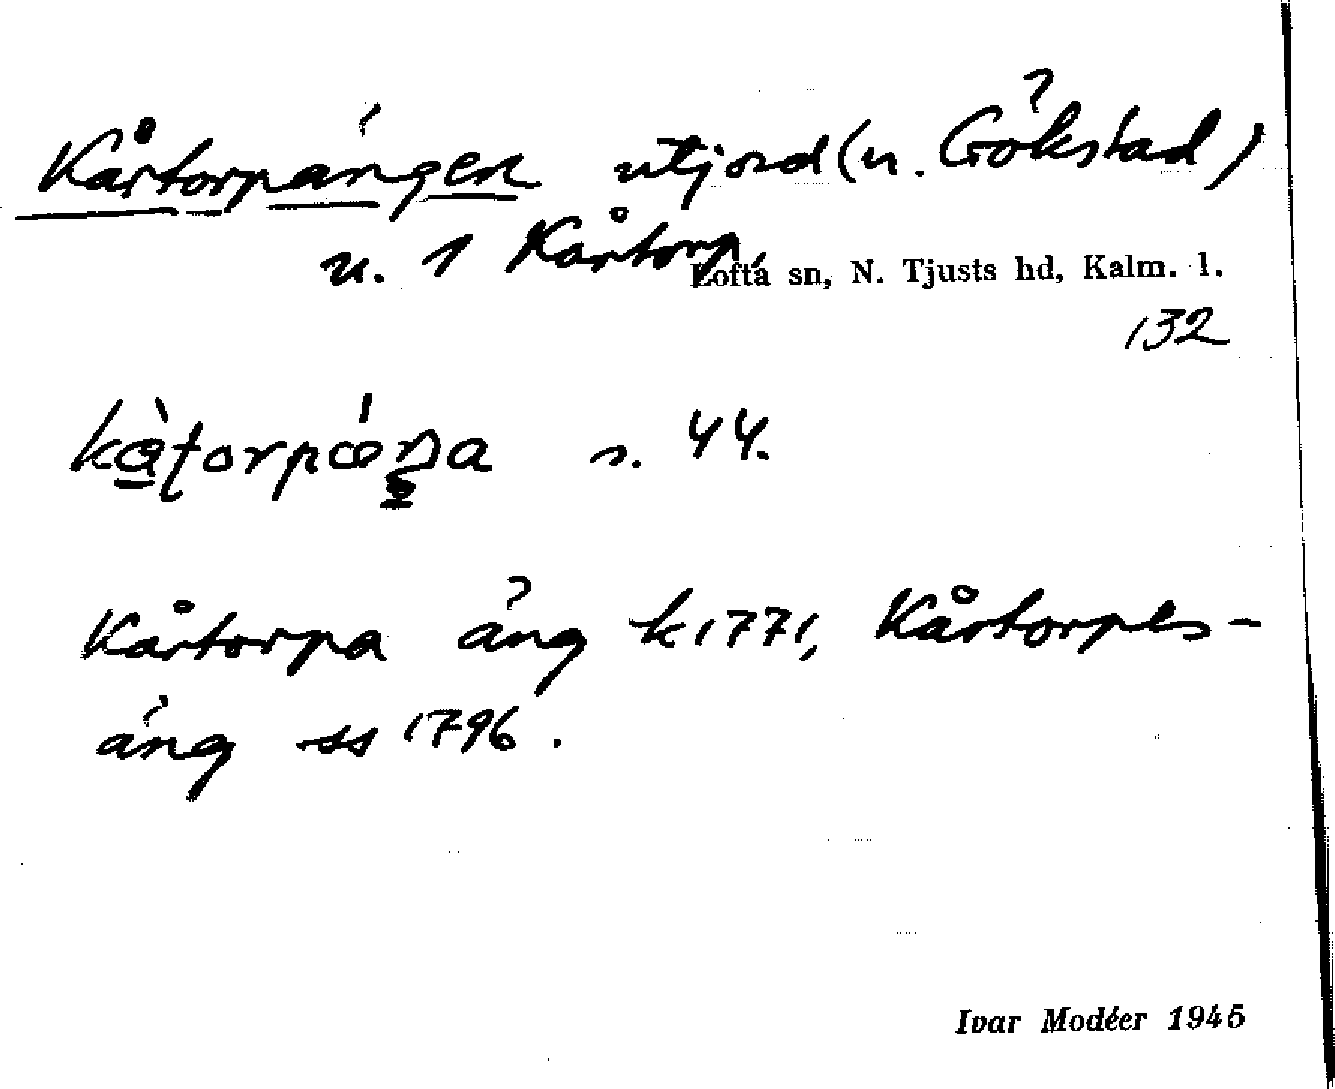 Kårtorpängen utjord (u. Gökstad)
u. 1 Kårtorp,
Lofta sn, N. Tjusts hd, Kalm. l.
132
s. 44.
Kårtorpa äng k 1771, Kårtorps-
äng ss 1796.
Ivar Modéer 1945